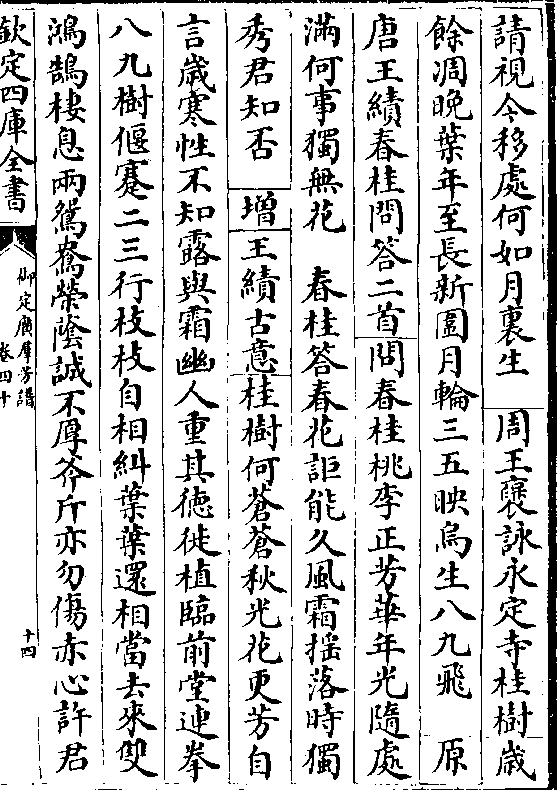 請視今移處何如月裏生　周王襃詠永定寺桂樹歲
餘凋晚葉年至長新圍月輪三五映烏生八九飛　原
唐王績春桂問答二首問春桂桃李正芳華年光隨處
滿何事獨無花　春桂答春花詎能久風霜揺落時獨
秀君知否　增王績古意桂樹何蒼蒼秋光花更芳自
言歲寒性不知露與霜幽人重其徳徙植臨前堂連拳
八九樹偃蹇二三行枝枝自相糾葉葉還相當去來雙
鴻鵠棲息兩鴛鴦榮蔭誠不厚斧斤亦勿傷赤心許君
欽定四庫全書
御定廣羣芳譜
卷四十
十四